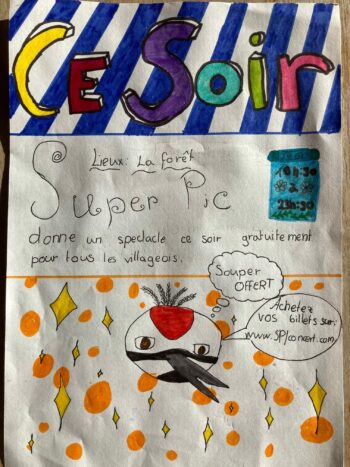 CE Soir
Lieux: La forêt
Super Pic
19h30
à
23h30
donne un spectacle ce soir gratuitement
pour tous les villageois.
Souper
OFFERT
Achetez
vos billets sur: